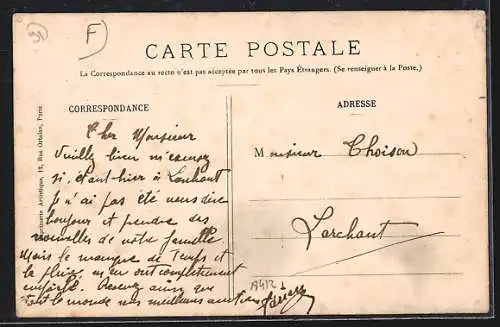 CARTE POSTALE
La Correspondance au recto n'est pas acceptée par tous les Pays Étrangers. (Se renseigner à la Poste.)
CORRESPONDANCE
Cher Monsieur
Veuillez bien m'excuser
si, étant hier à Larchant
je n'ai pas été vous dire
bonjour et prendre des
nouvelles de votre famille.
Mais le manque de temps et
la pluie, m'en ont complètement
empêché. Recevez ainsi que
tout le monde nos meilleures
ADRESSE
Monsieur Choison
Larchant
Imprimerie Artistique, 12, Rue Ortolan, Paris
F